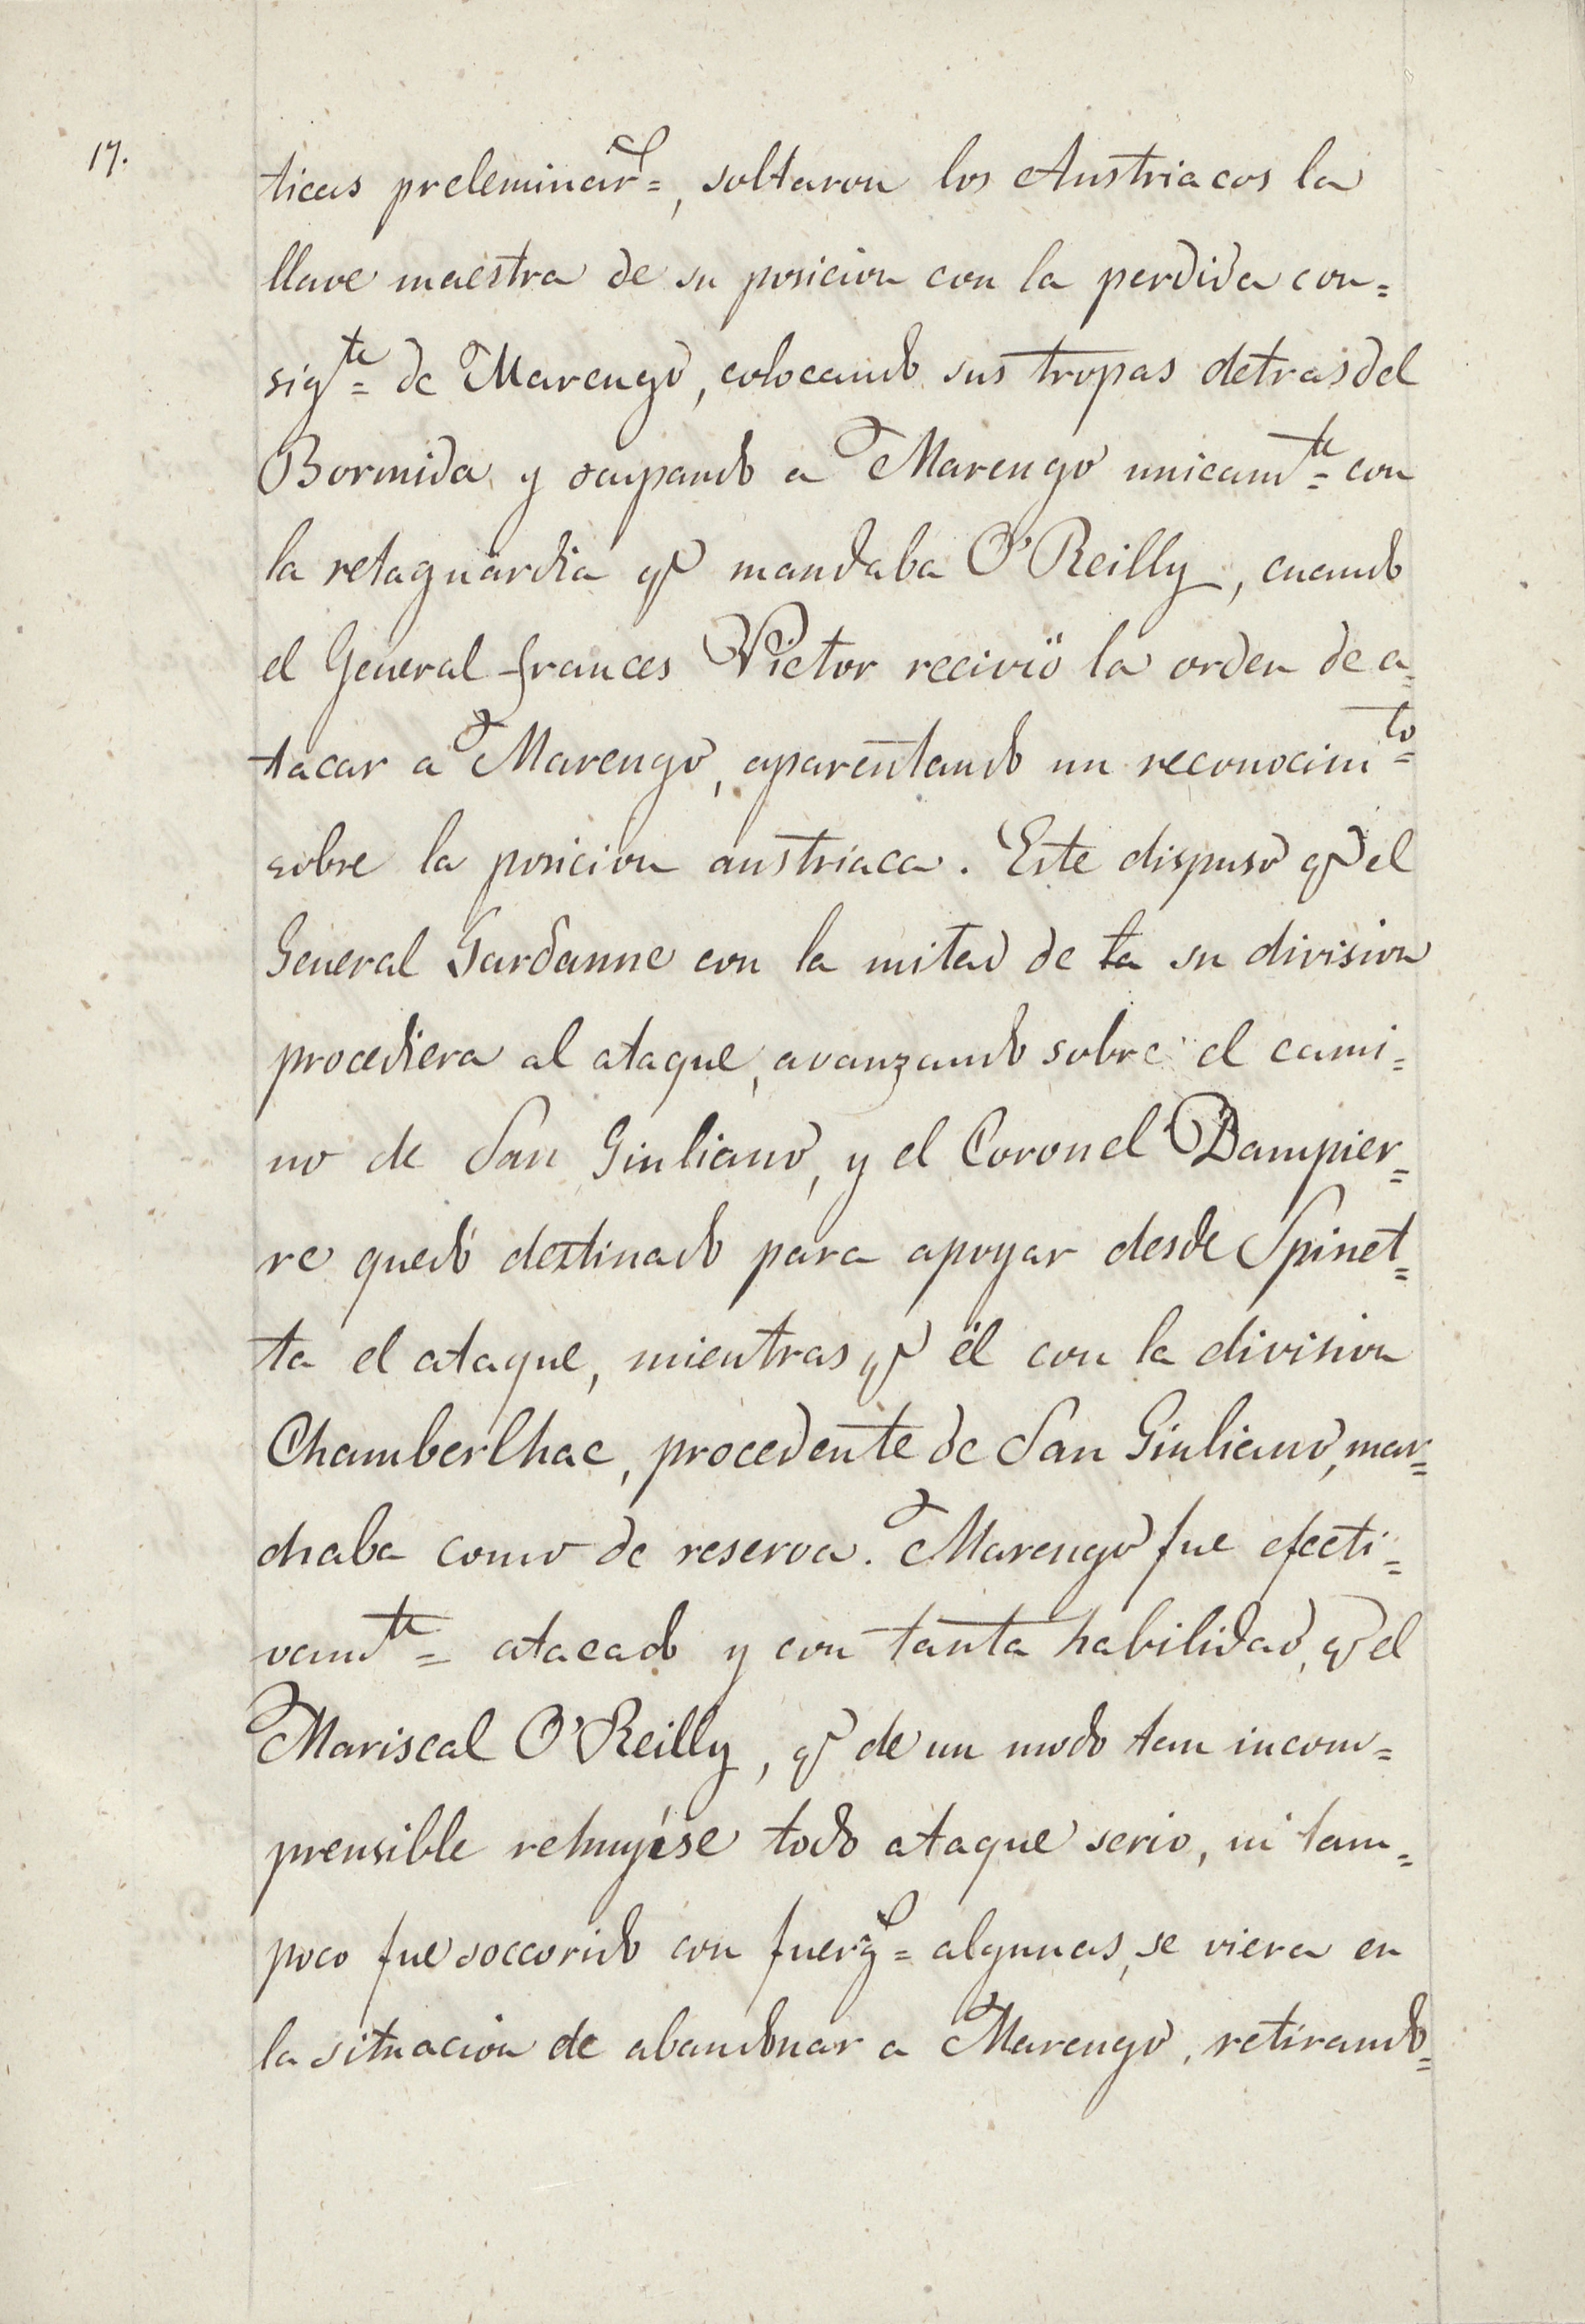 17.
ticas preleminar^s=, soltaron los Austriacos la
llave maestra de su posicion con la perdida con=
sig^te= de Marengo, colocando sus tropas detras del
Bormida y ocupando a Marengo unicam^te= con
la retaguardia q^e mandaba O'Reilly, cuando
el General frances Victor recivió la orden de a=
tacar a Marengo, aparentando un reconocim^to=
sobre la posicion austriaca. Este dispuso q^e el
General Gardanne con la mitad de ta su division
procediera al ataque, avanzando sobre el cami=
no de San Giuliano, y el Coronel Dampier=
re quedó destinado para apoyar desde Spinet=
ta el ataque, mientras q^e él con la division
Chamberlhac, procedente de San Giuliano, mar=
chaba como de reserva. Marengo fue efecti=
vam^te= atacado y con tanta habilidad, q^e el
Mariscal O'Reilly, q^e de un modo tan incom=
prensible rehuyése todo ataque serio, ni tam=
poco fue soccorido con fuerz^s= algunas, se viera en
la situacion de abandonar a Marengo, retirando=